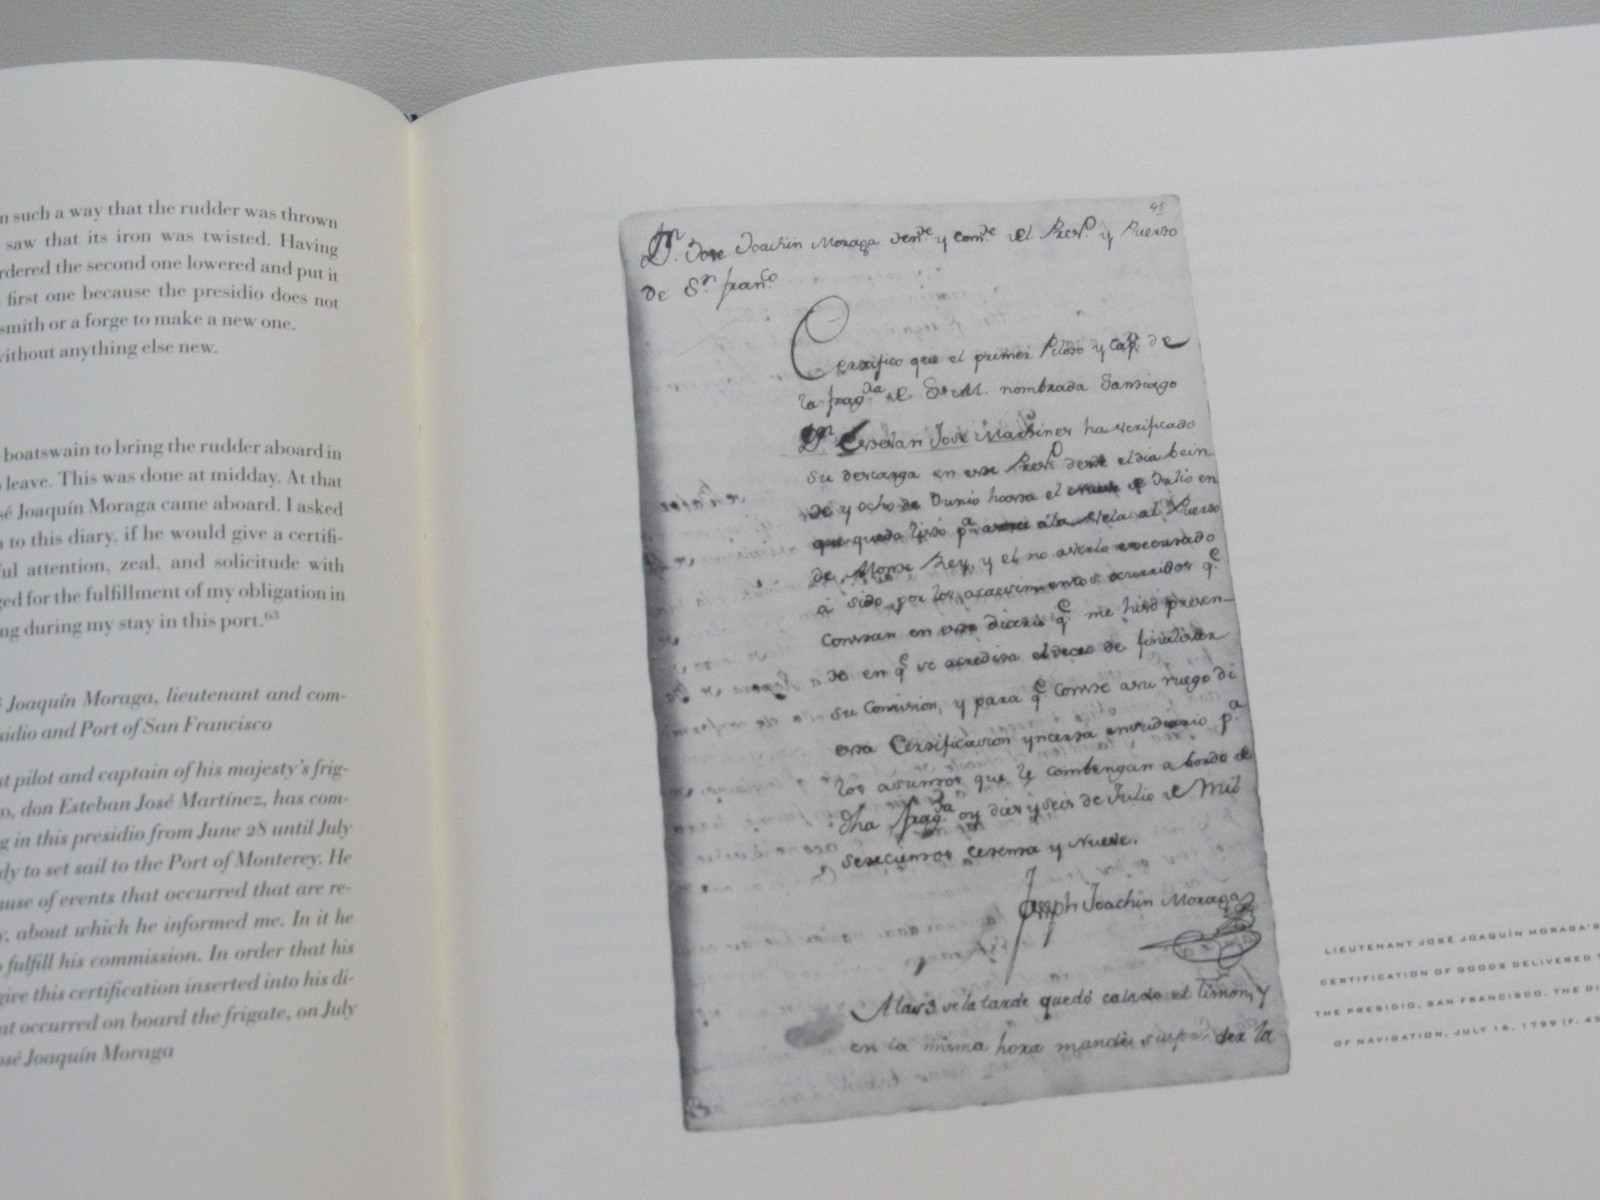 n such a way that the rudder was thrown
saw that its iron was twisted. Having
rdered the second one lowered and put it
first one because the presidio does not
smith or a forge to make a new one.
vithout anything else new.
boatswain to bring the rudder aboard in
leave. This was done at midday. At that
sé Joaquín Moraga came aboard. I asked
n to this diary, if he would give a certifi-
ful attention, zeal, and solicitude with
ged for the fulfillment of my obligation in
ng during my stay in this port.63
é Joaquín Moraga, lieutenant and com-
sidio and Port of San Francisco
st pilot and captain of his majesty's frig-
o, don Esteban José Martínez, has com-
g in this presidio from June 28 until July
dy to set sail to the Port of Monterey. He
use of events that occurred that are re-
y, about which he informed me. In it he
o fulfill his commission. In order that his
give this certification inserted into his di-
at occurred on board the frigate, on July
osé Joaquín Moraga
41
Dn. Jose Joachin Moraga tente. y comte. del Presº. y Puerto
de Sn. franco.
Certifico que el primer Piloto y Capn. de
la fragta. de S. M. nombrada Santiago
Dn. Estevan José Martines ha verificado
su descarga en este Presº desde el dia bein
te y ocho de Junio hasta el de Julio en
que queda listo pa. a la Vela al Puerto
de Monte Rey, y el no averlo executado
á sido por los acaesimientos ocurridos qe.
constan en este diario qe. me hiso presen-
te en qe se acredita el deceo de finalisar
su Comision, y para qe conste a su ruego di
esta Certificacion yncerta en su diario pa.
los asuntos que le combengan a bordo de
dha fragta. oy dies y seis de Julio de Mil
setecientos cetenta y Nueve.
Joseph Joachin Moraga
A las 3 de la tarde quedó calado el timon, y
en la misma hora mandé suspender la
LIEUTENANT JOSÉ JOAQUÍN MORAGA'S
CERTIFICATION OF GOODS DELIVERED T
THE PRESIDIO, SAN FRANCISCO, THE DI
OF NAVIGATION, JULY 16, 1799 (F. 45